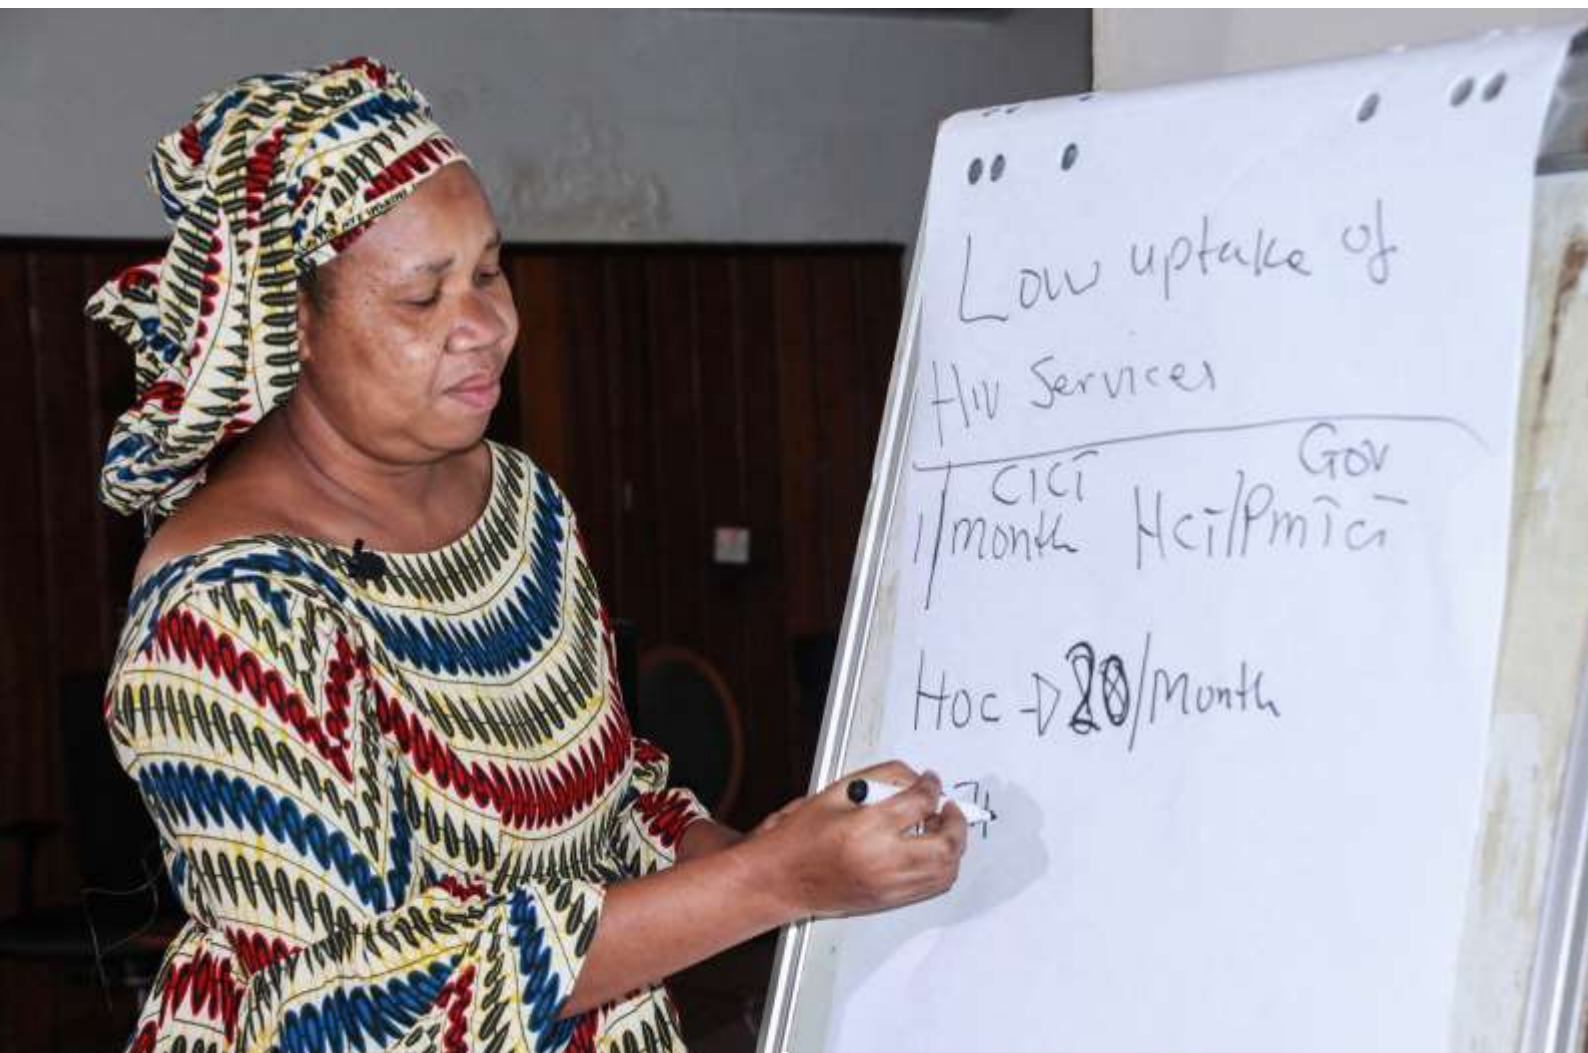 Low uptake of
HIV Services
CICI Gov
1/month HCI/PMICI
HOC → 20/Month